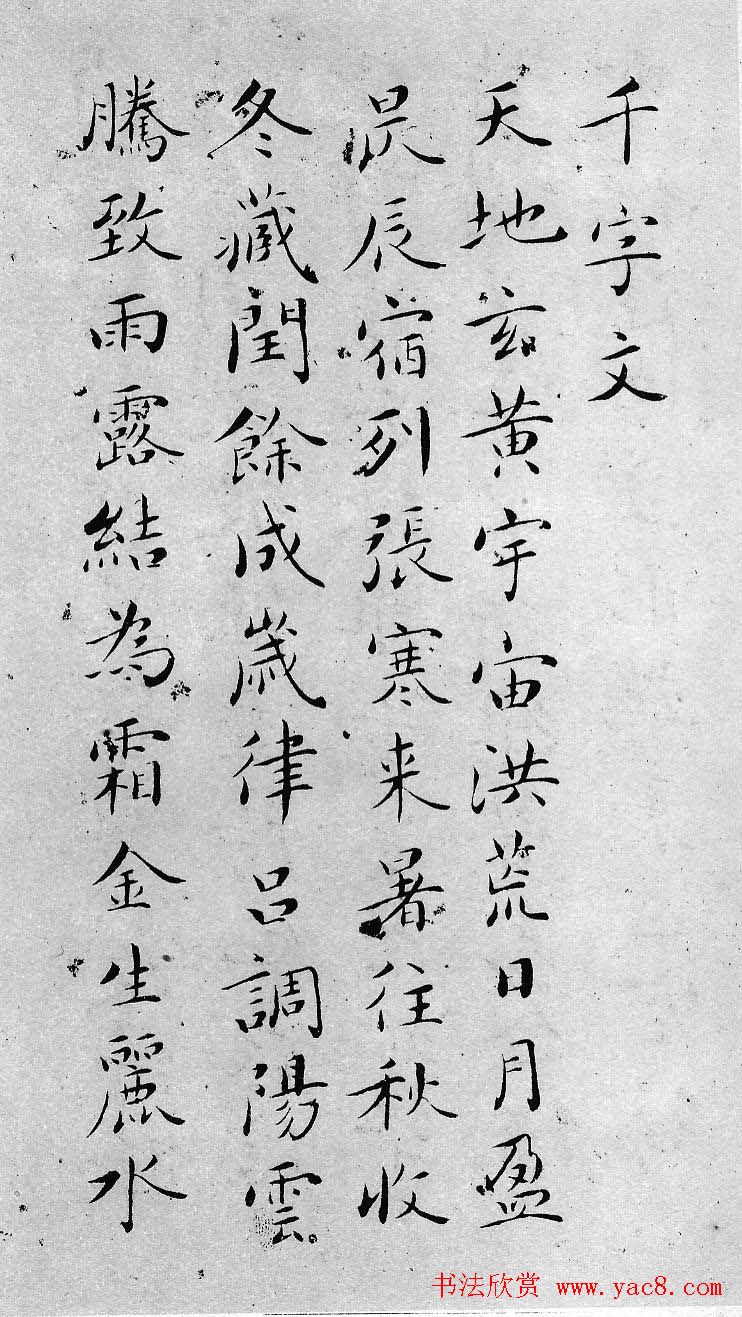 千字文
天地玄黄宇宙洪荒日月盈
昃辰宿列張寒来暑往秋收
冬藏閏餘成歲律吕調陽雲
騰致雨露結為霜金生麗水
书法欣赏 www.yac8.com